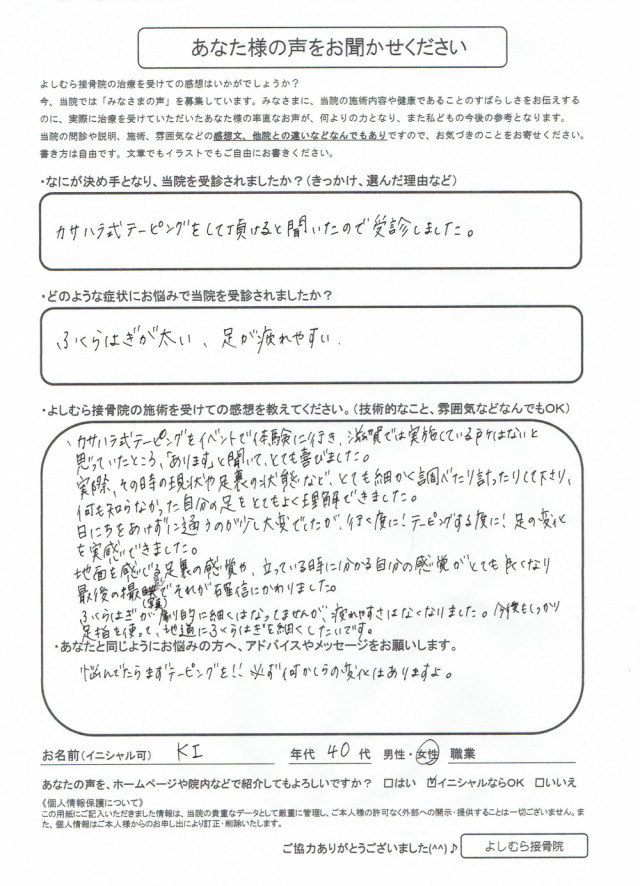 あなた様の声をお聞かせください
よしむら接骨院の治療を受けての感想はいかがでしょうか？
今、当院では「みなさまの声」を募集しています。みなさまに、当院の施術内容や健康であることのすばらしさをお伝えする
のに、実際に治療を受けていただいたあなた様の率直なお声が、何よりの力となり、また私どもの今後の参考となります。
当院の問診や説明、施術、雰囲気などの感想文、他院との違いなどなんでもありですので、お気づきのことをお寄せください。
書き方は自由です。文章でもイラストでもご自由にお書きください。
・なにが決め手となり、当院を受診されましたか？（きっかけ、選んだ理由など）
カサハラ式テーピングをして頂けると聞いたので受診しました。
・どのような症状にお悩みで当院を受診されましたか？
ふくらはぎが太い、足が疲れやすい.
・よしむら接骨院の施術を受けての感想を教えてください。（技術的なこと、雰囲気などなんでもOK）
、カサハラ式テーピングをイベントで体験に行き、滋賀では実施している所はないと
思っていたところ、「あります」と聞いて、とても喜びました。
実際、その時の現状や足裏の状態など、とても細かく調べたり計ったりして下さり、
何も知らなかった自分の足をとてもよく理解できました。
日にちをあけずに通うのが少し大変でしたが、行く度に！テーピングする度に！足の変化
を実感できました。
地面を感じる足裏の感覚や、立っている時に分かる自分の感覚がとても良くなり
最後の撮影(写真)でそれが確信にかわりました。
ふくらはぎが劇的に細くはなってませんが、疲れやすさはなくなりました。今後もしっかり
足指を使って、地道にふくらはぎを細くしたいです。
・あなたと同じようにお悩みの方へ、アドバイスやメッセージをお願いします。
悩んでたらまずテーピングを!! 必ず何かしらの変化はありますよ。
お名前（イニシャル可） KI 年代 40 代 男性・女性 職業
あなたの声を、ホームページや院内などで紹介してもよろしいですか？ □はい ☑イニシャルならOK □いいえ
《個人情報保護について》
この用紙にご記入いただきました情報は、当院の貴重なデータとして厳重に管理し、ご本人様の許可なく外部への開示・提供することは一切ございません。ま
た、個人情報はご本人様からのお申し出により訂正・削除いたします。
ご協力ありがとうございました(^^)♪ よしむら接骨院